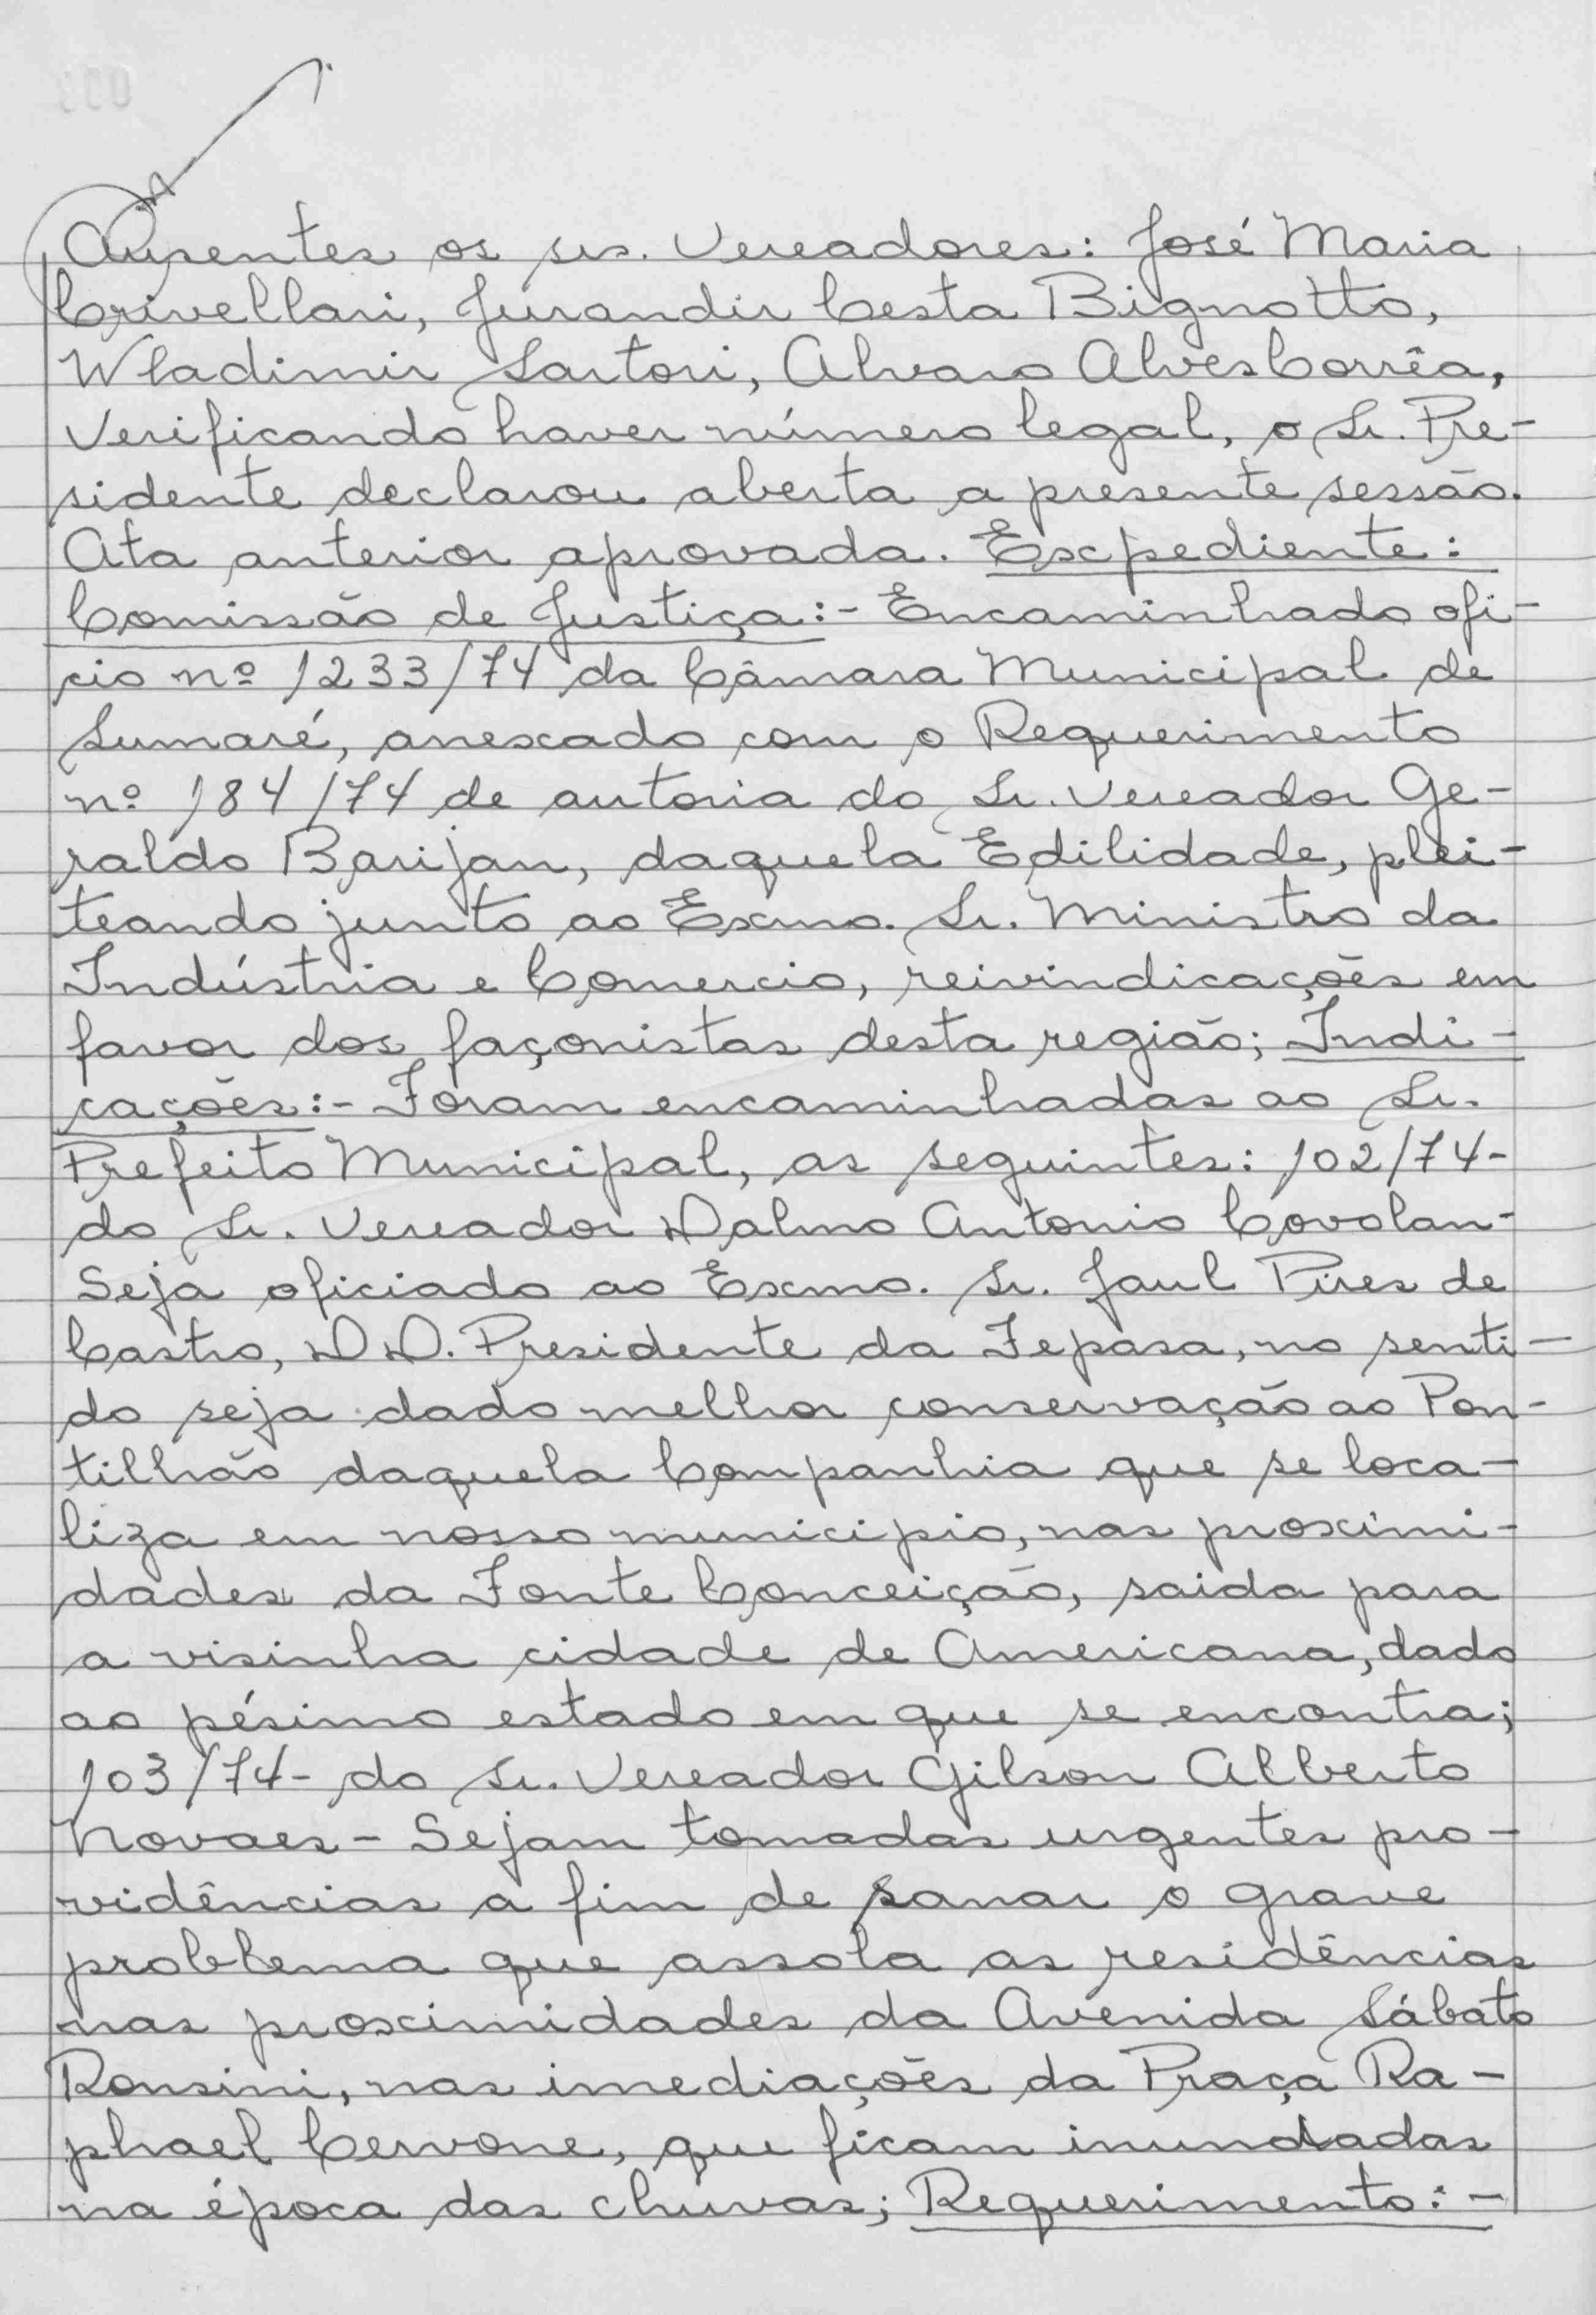 Ausentes os srs. Vereadores: José Maria
Crivellari, Jurandir Cesta Bignotto,
Wladimir Sartori, Alvaro Alves Corrêa,
Verificando haver número legal, o Sr. Pre-
sidente declarou aberta a presente sessão.
Ata anterior aprovada. Expediente:
Comissão de Justiça:- Encaminhado ofi-
cio nº 1233/74 da Câmara Municipal de
Sumaré, anexado com o Requerimento
nº 184/74 de autoria do Sr. Vereador Ge-
raldo Barijan, daquela Edilidade, plei-
teando junto ao Exmo. Sr. Ministro da
Indústria e Comercio, reivindicações em
favor dos façonistas desta região; Indi-
cações:- Foram encaminhadas ao Sr.
Prefeito Municipal, as seguintes: 102/74-
do Sr. Vereador Dalmo Antonio Covolan-
Seja oficiado ao Exmo. Sr. Jaul Pires de
Castro, DD. Presidente da Fepasa, no senti-
do seja dado melhor conservação ao Pon-
tilhão daquela Companhia que se loca-
liza em nosso municipio, nas proximi-
dades da Fonte Conceição, saida para
a visinha cidade de Americana, dado
ao pésimo estado em que se encontra;
103/74- do Sr. Vereador Gilson Alberto
Novaes - Sejam tomadas urgentes pro-
vidências a fim de sanar o grave
problema que assola as residências
nas proximidades da Avenida Sábato
Ronsini, nas imediações da Praça Ra-
phael Cervone, que ficam inundadas
na época das chuvas; Requerimento:-